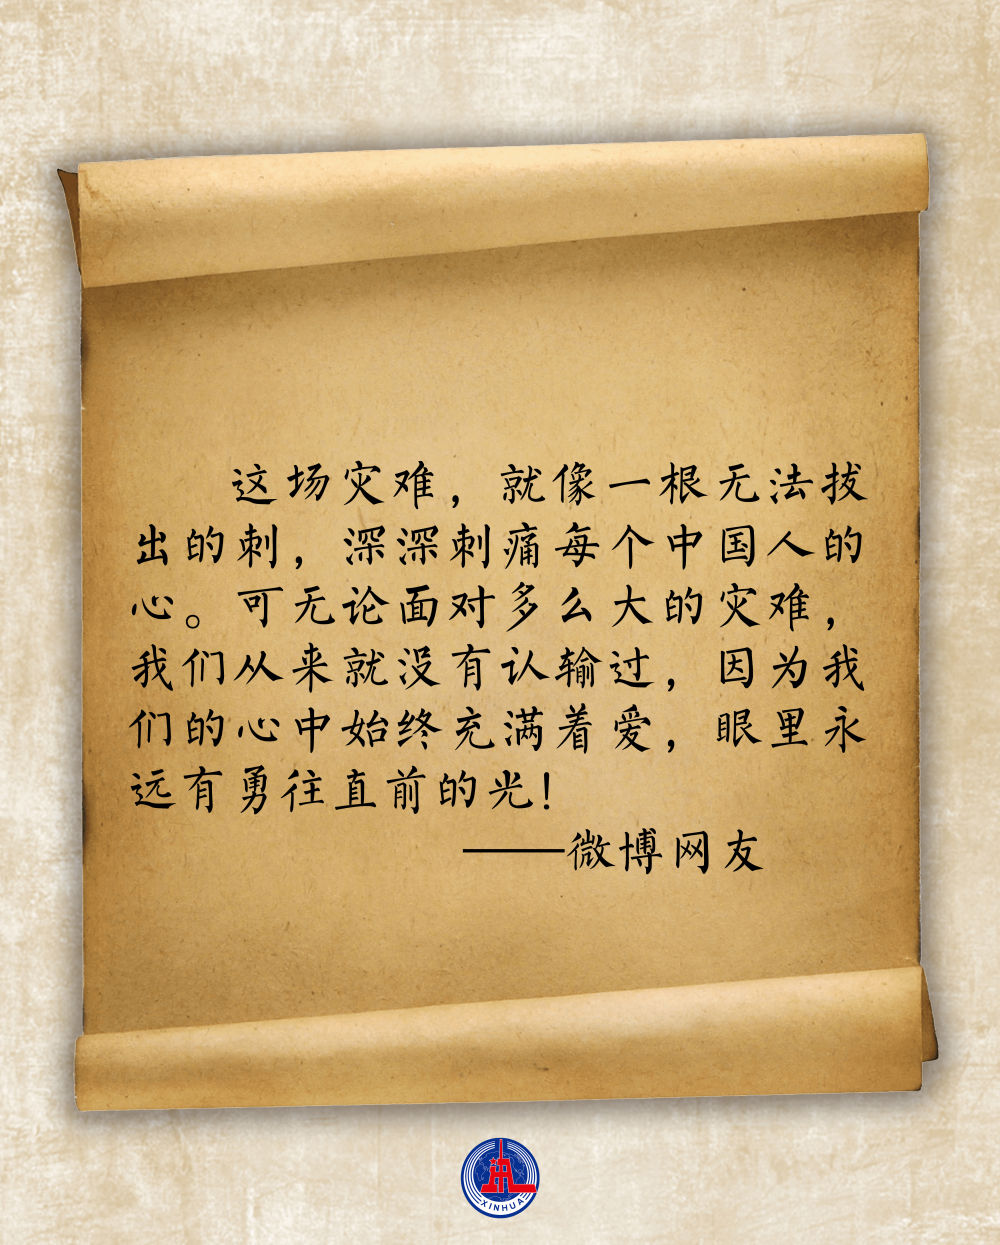 这场灾难，就像一根无法拔
出的刺，深深刺痛每个中国人的
心。可无论面对多么大的灾难，
我们从来就没有认输过，因为我
们的心中始终充满着爱，眼里永
远有勇往直前的光！
——微博网友
XINHUA